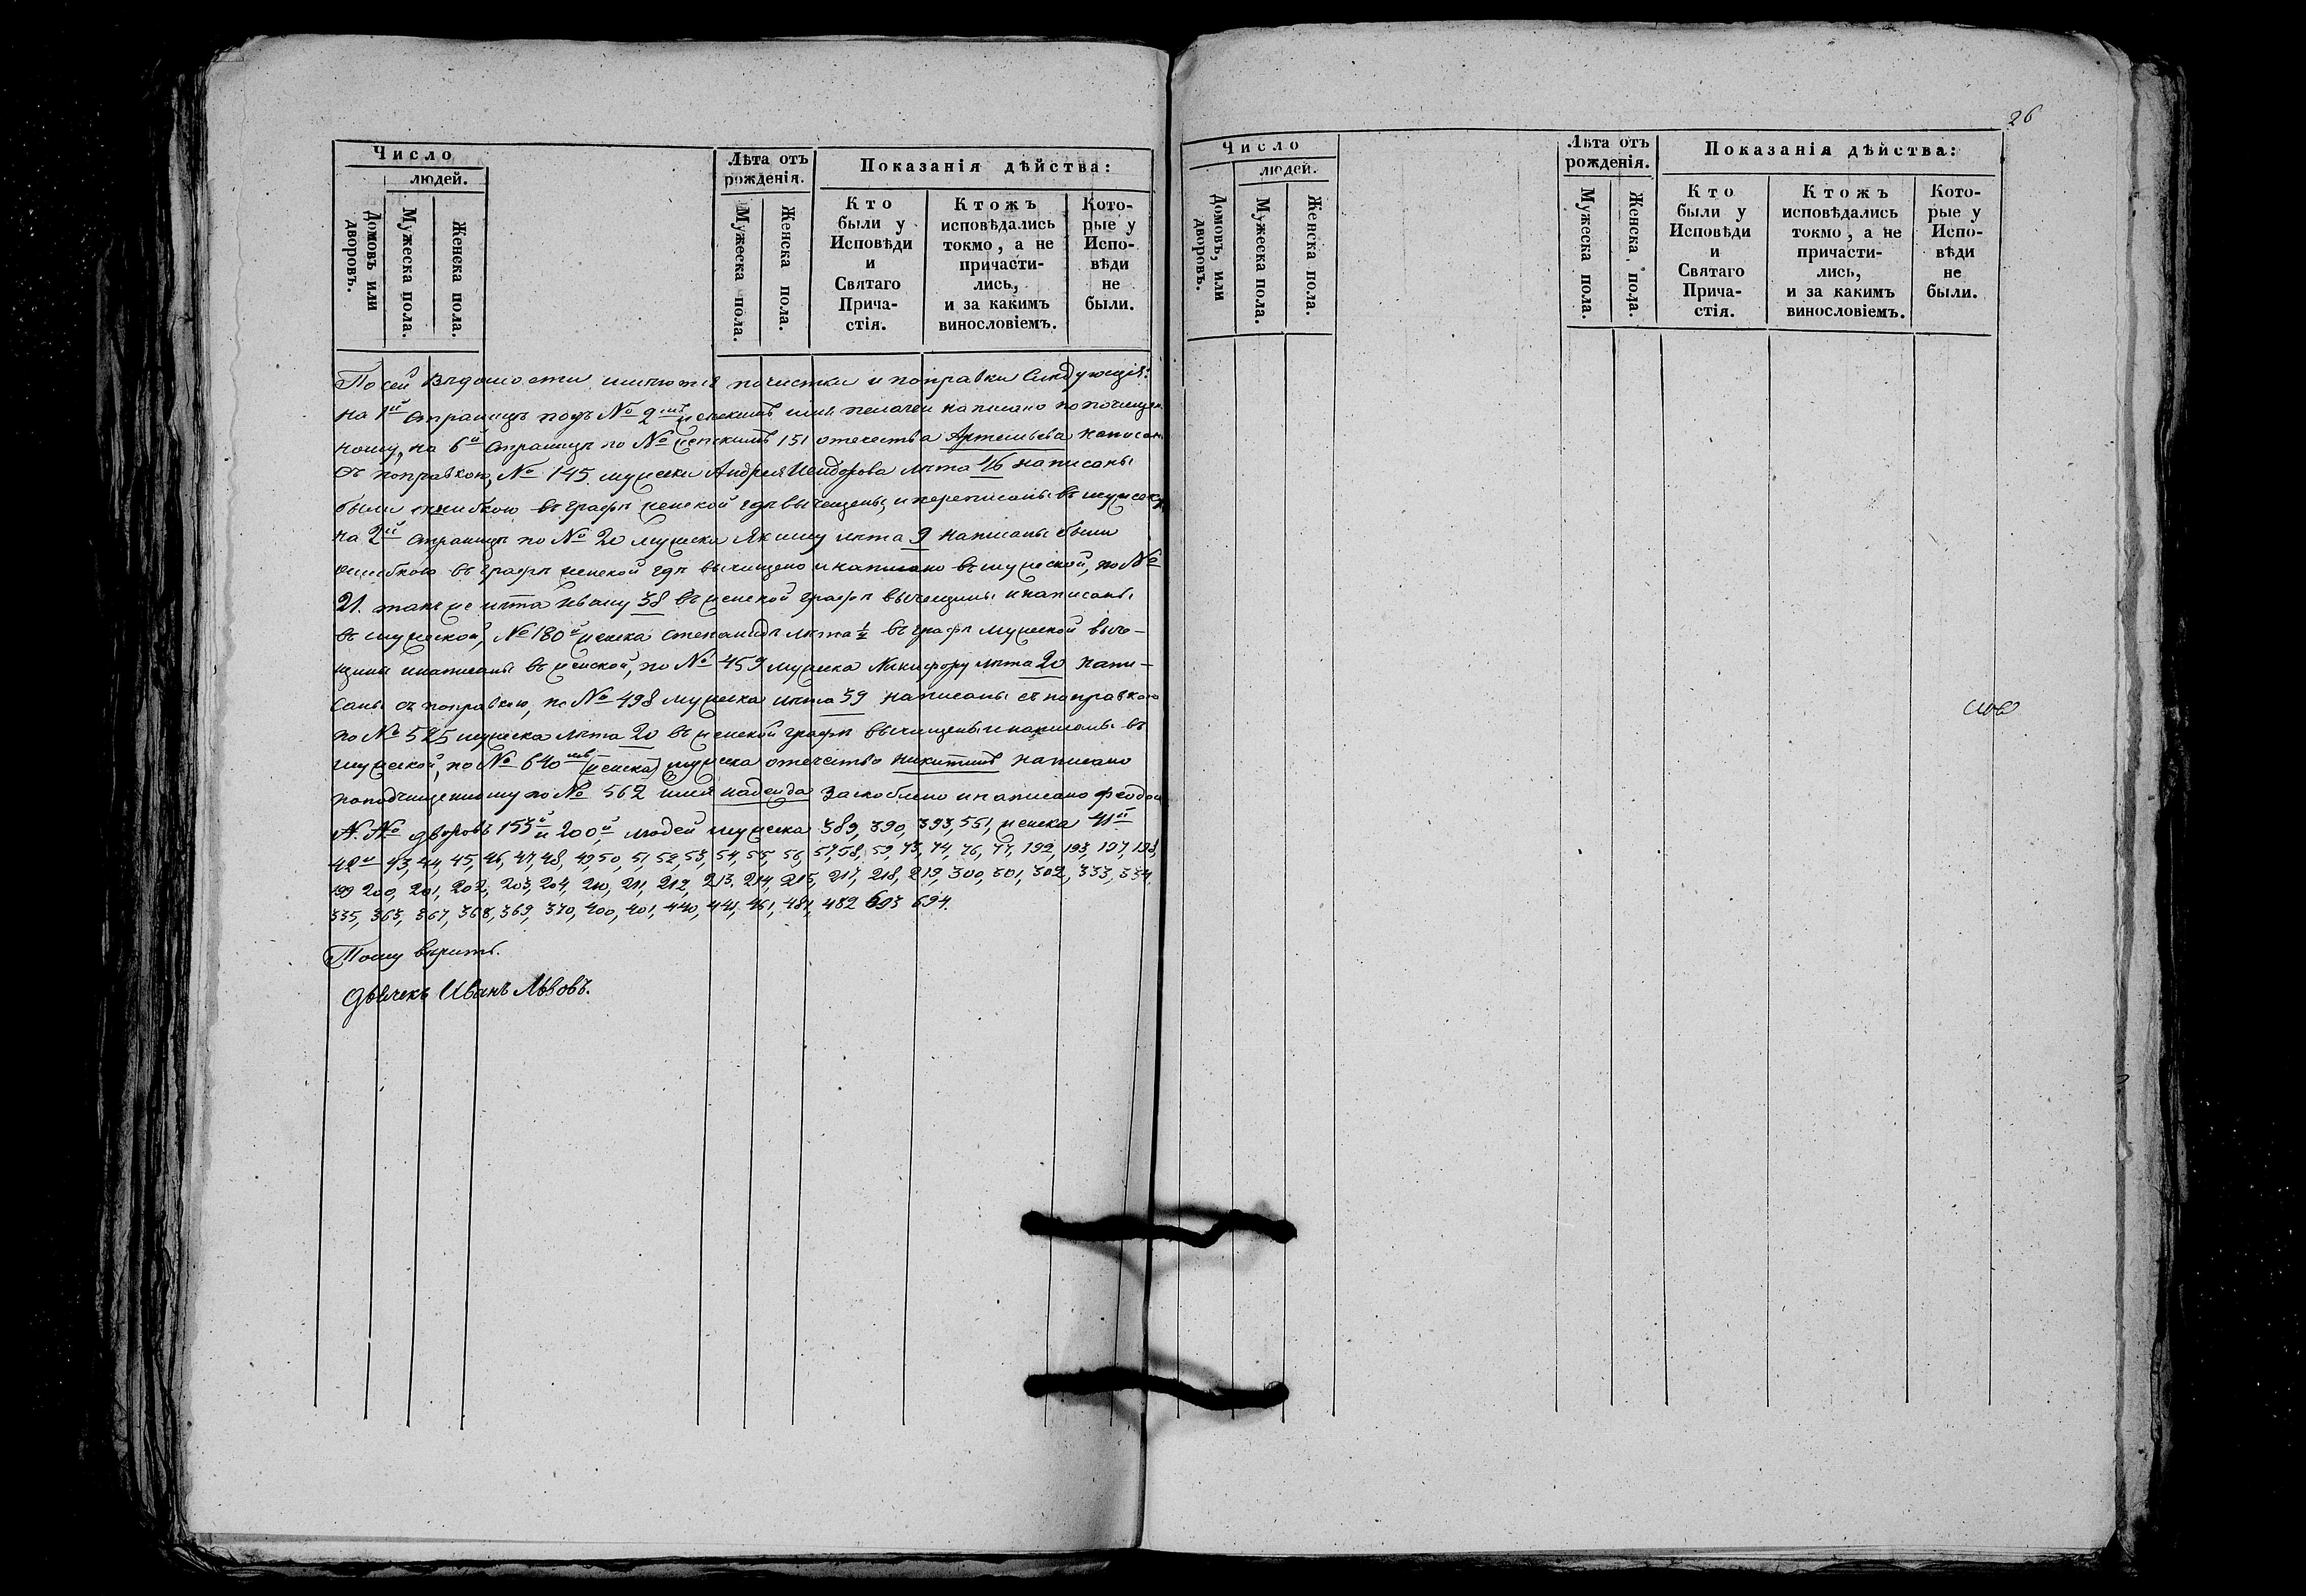 Число
людей.
Домовъ или дворовъ.
Мужеска пола.
Женска пола.
Лѣта отъ рожденія.
Мужеска пола.
Женска пола.
Показанія дѣйства:
Кто были у Исповѣди и Святаго Прича-стія.
Ктожъ исповѣдались токмо, а не причасти-лись, и за какимъ винословіемъ.
Кото-рые у Испо-вѣди не были.
По сей Вѣдомости имѣются почистки и поправки Слѣдующія:
на 1й Страницѣ подъ № 2мъ женскимъ имя Пелагеи написано по почищен
ному, на 6й Страницѣ по № женскимъ 151 отечества Артемьева написан
съ поправкою, № 145. мужеска Андрея Исидорова лѣта 46 написаны
были ошибкою въ графѣ женской гдѣ вычещены, и переписаны въ мужеску
на 2й Страницѣ по № 20 мужеска Якиму лѣта 9 написаны были
ошибкою въ графѣ женской гдѣ вычищено и написано въ мужеской, по №
21. также лѣта Ивану 38 въ женской графѣ вычещины и написаны
въ мужеской, № 180й женска Степанидѣ лѣта ½ въ графѣ мужеской выче-
щины и написаны въ женской, по № 459 мужеска Никифору лѣта 20 напи-
саны съ поправкою, по № 498 мужеска лѣта 39 написаны съ поправкою
по № 525 мужеска лѣта 20 въ женской графѣ вычищены и написаны въ
мужеской, по № 640мъ (женска) мужеска отечество Никитинъ написано
по подчищенному по № 562 имя Надежда заскоблено и написано Федо
№. № дворовъ 153й и 200й людей мужеска 389, 390, 393, 551, женска 41й
42й 43, 44, 45, 46, 47, 48, 49, 50, 51, 52, 53, 54, 55, 56, 57, 58, 59, 73, 74, 76, 77, 192, 193, 197, 198,
199 200, 201, 202, 203, 204, 210, 211, 212, 213. 214, 215, 217, 218, 219, 300, 301, 302, 333, 334.
335, 363, 367, 368, 369, 370, 400, 401, 440, 441, 461, 481, 482 693 694.
Тому вѣрить.
Дьячекъ Иванъ Львовъ.
26
Число
людей.
Домовъ, или дворовъ.
Мужеска пола.
Женска пола.
Лѣта отъ рожденія.
Мужеска пола.
Женска пола.
Показанія дѣйства:
Кто были у Исповѣди и Святаго Прича-стія.
Ктожъ исповѣдались токмо, а не причасти-лись, и за какимъ винословіемъ.
Кото-рые у Испо-вѣди не были.